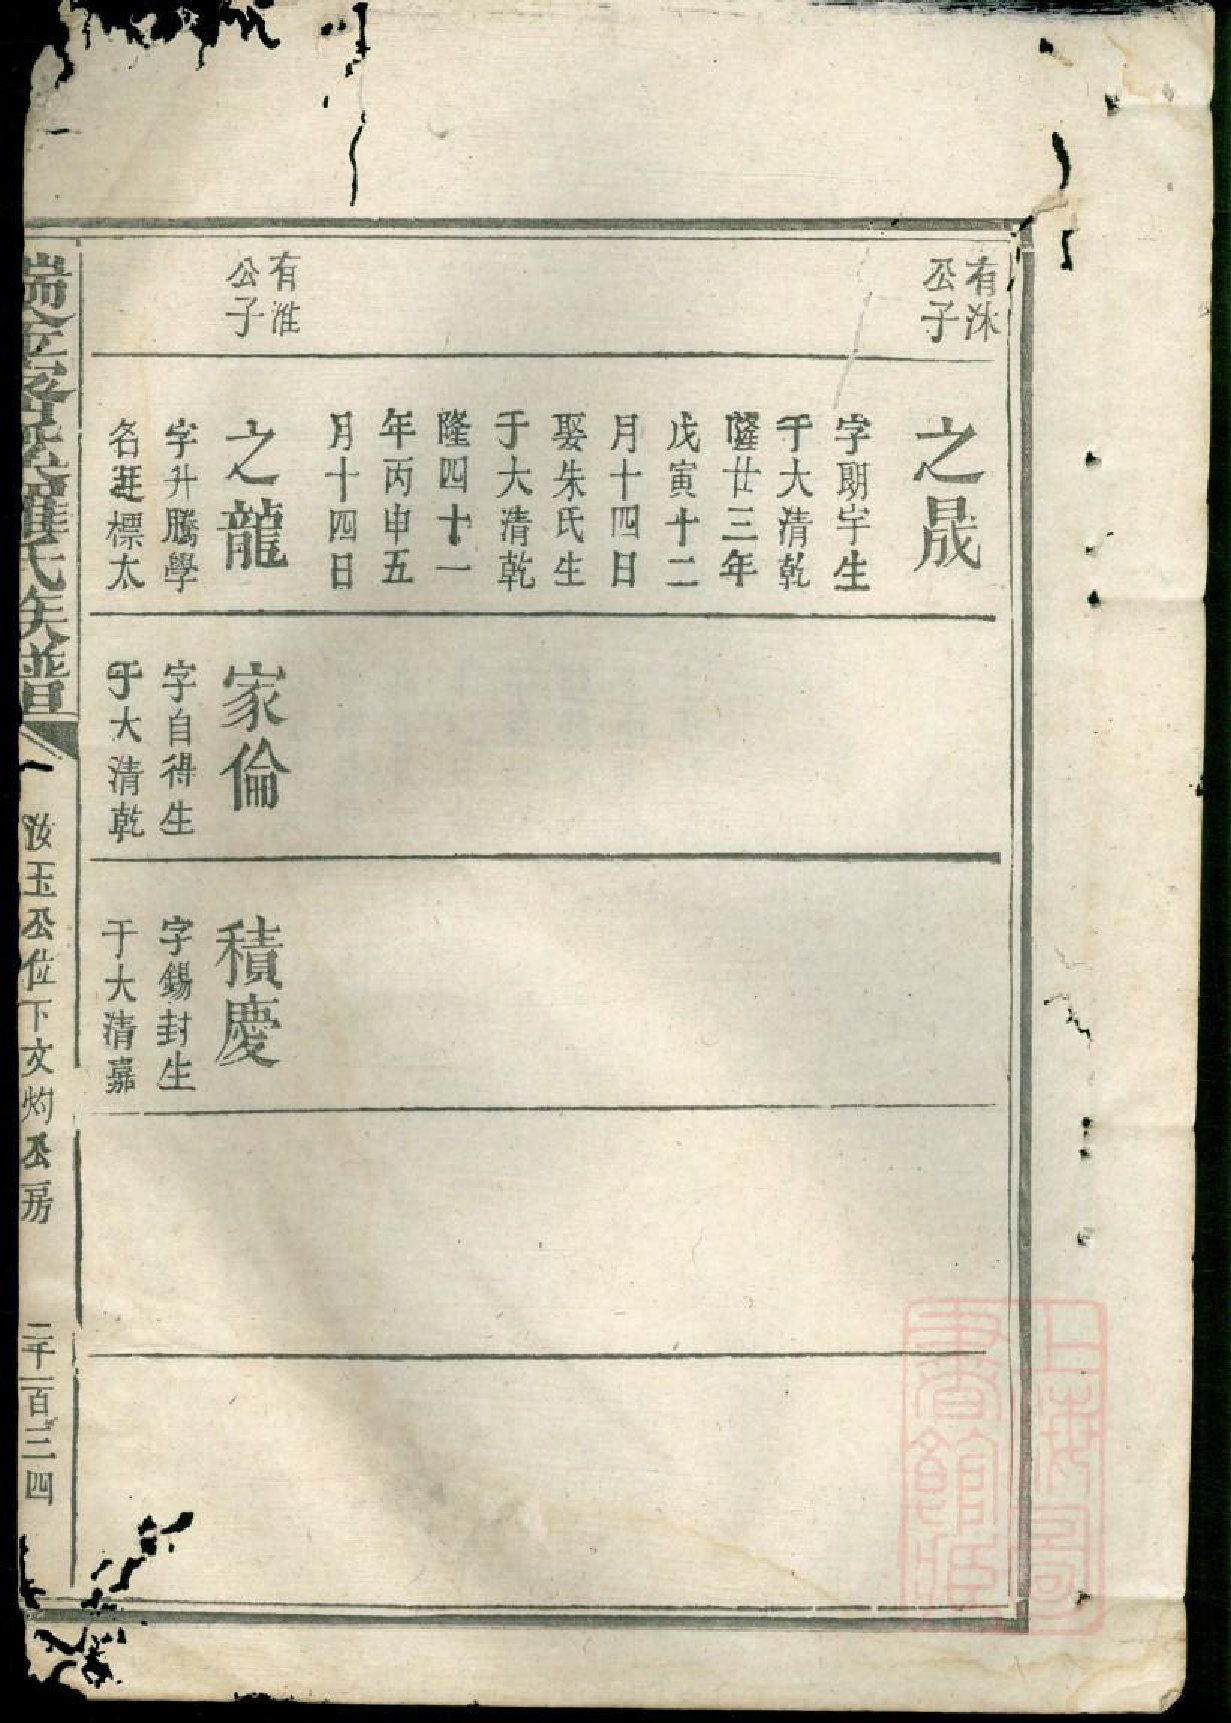 有沐
公子
之晟
字朗宇生
于大清乾
隆廿三年
戊寅十二
月十四日
娶朱氏生
于大清乾
隆四十一
年丙申五
月十四日
有淮
公子
之龍
字升騰學
名廷標太
家倫
字自得生
于大清乾
積慶
字錫封生
于大清嘉
瑞金密溪羅氏族譜
汝玉公位下文灼公房
二千一百三四
上海圖
書館藏